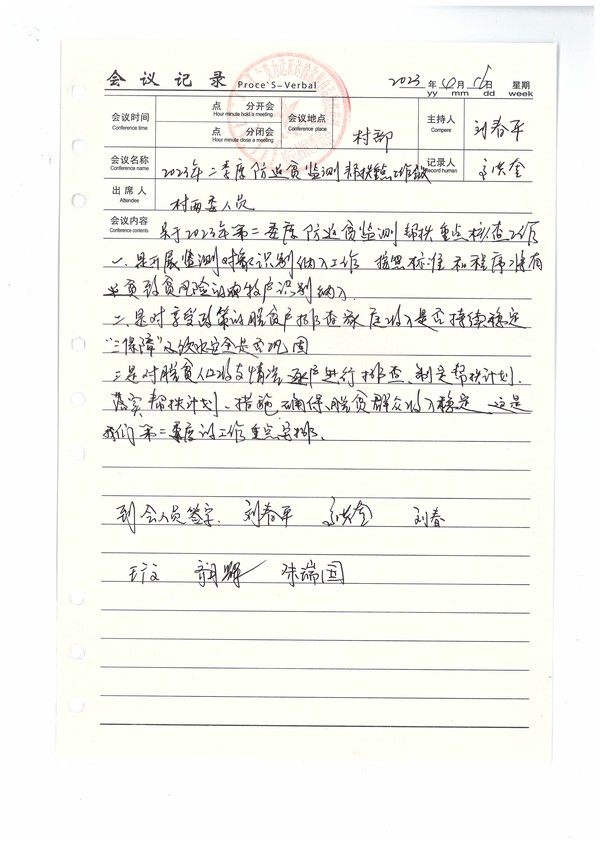 会议记录 Proce'S-Verbal 2023 年 4 月 16 日 星期
yy mm dd week
会议时间 点 分开会 会议地点 村部 主持人 刘春平
Conference time Hour minute hold a meeting Conference place Compere
点 分闭会
Hour minute close a meeting
会议名称 2023年二季度防返贫监测帮扶重点工作会议 记录人
Conference name Record human
出席人 村两委人员
Attendee
会议内容 关于2023年第二季度防返贫监测帮扶重点核查工作
Conference contents
一、是开展监测对象识别纳入工作 按照标准和程序 将有
返贫致贫风险的农牧户识别纳入.
二、是对享受政策的脱贫户排查家庭收入是否持续稳定
"三保障"及饮水安全是否巩固
三是对脱贫人口收支情况 逐户进行排查、制定帮扶计划.
落实帮扶计划、措施 确保脱贫群众收入稳定 这是
我们第二季度的工作重点安排、
到会人员签字、 刘春平 刘春
朱瑞国